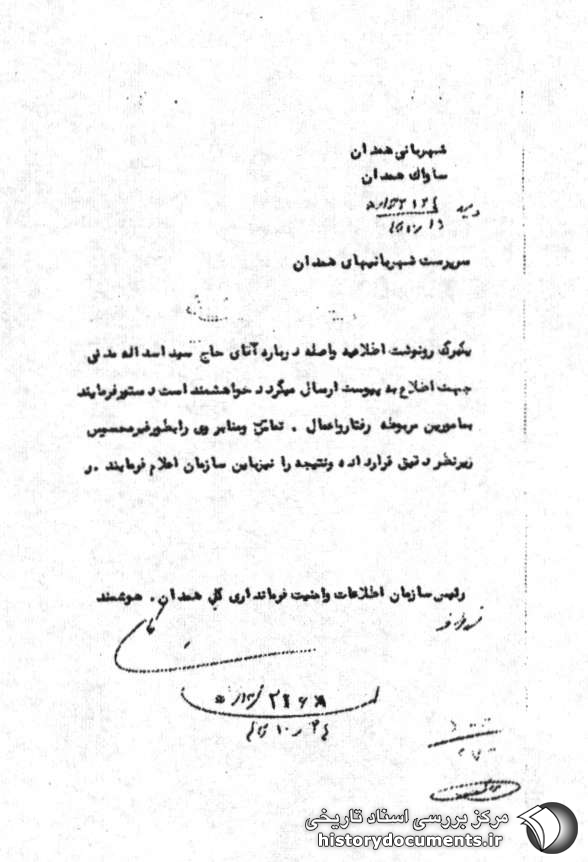 شهربانی همدان
ساواک همدان
سرپرست شهربانیهای همدان
یکبرگ رونوشت اطلاعیه واصله درباره آقای حاج سید اسداله مدنی
جهت اطلاع به پیوست ارسال میگردد خواهشمند است دستورفرمایند
بمامورین مربوطه رفتارواعمال . تماس ومنابر وی رابطورغیرمحسوس
زیرنظر دقیق قرارداده ونتیجه را نیزباین سازمان اعلام فرمایند .ر
رئیس سازمان اطلاعات وامنیت فرمانداری کل همدان . هوشمند
مرکز بررسی اسناد تاریخی
historydocuments.ir